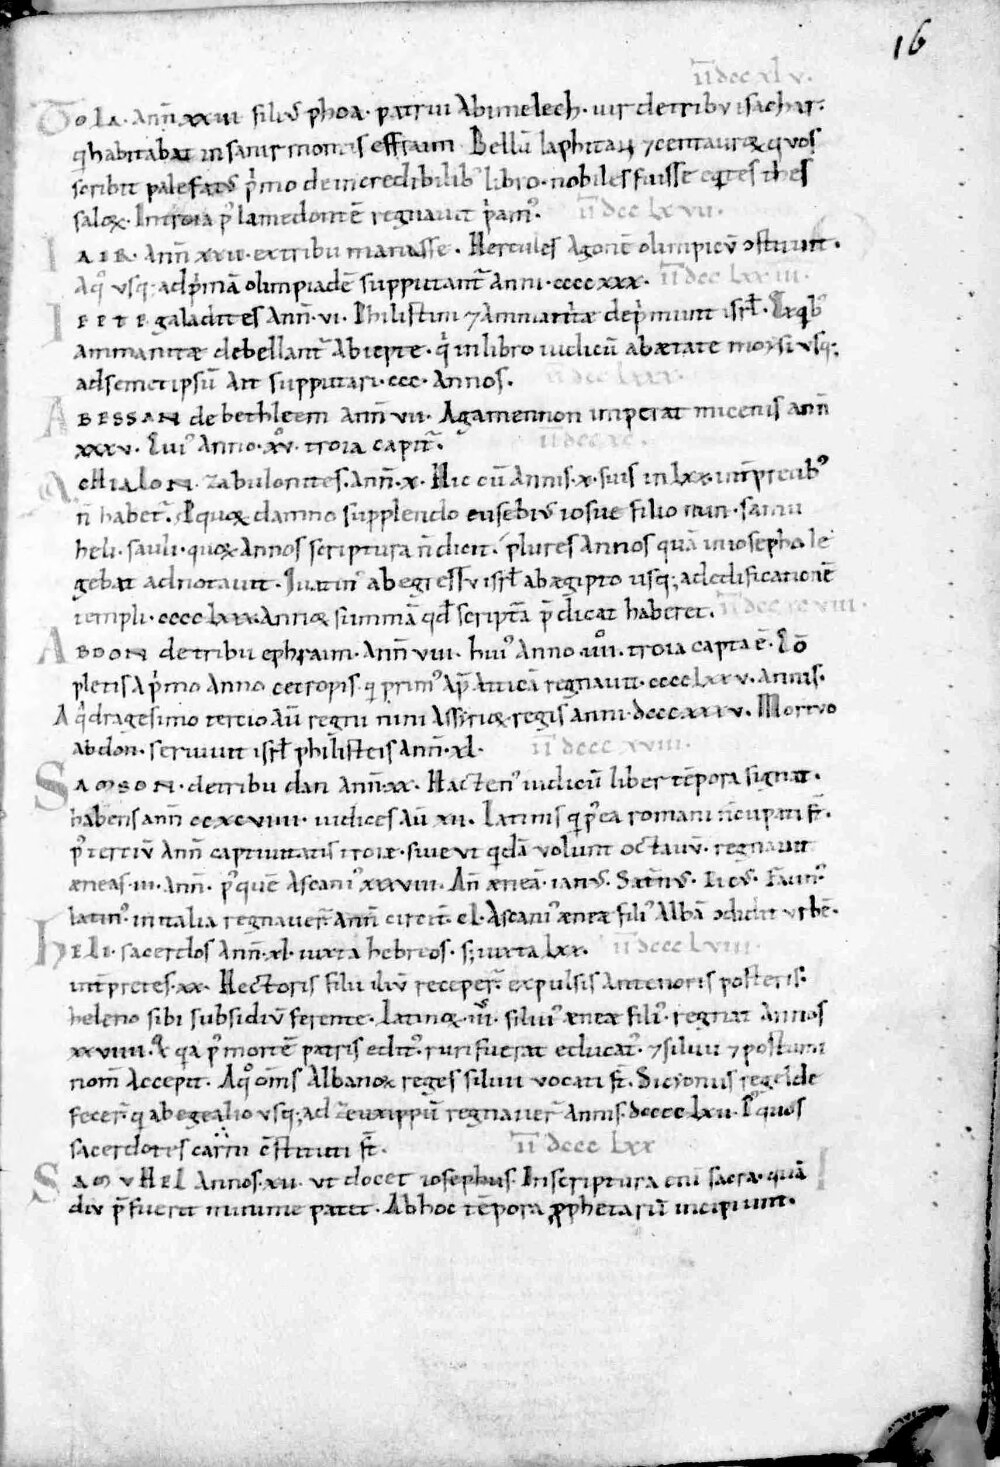 16
īīdccc xl v.
Tola. Ann̄ xxiii filiꝰ phoa. patrui Abimelech. uir detribu isachar.
q̇habitabat insanir montis effraim. Bellū laphitaꝝ ⁊centauroꝝ quos
scribit palefatꝰ p̍mo deincredibilibꝰ libro. nobiles fuisse eq̄tes thes
saloꝝ. Introia pꝰ lamedontē regnauit p̍amꝰ. īīdccc lx vii.
IAIR. Ann̄ xxii. extribu manasse. Hercules Agonē olimpicū ↄstituit.
Aq̊ usq; adp̍mā olimpiadē supputant̄ Anni. cccc xxx. īīdccc lxx iii.
IEPTE galadites Ann̄. vi. Philistiim ⁊Ammanitæ dep̍munt isrł. Ex q̍bꝰ
ammanitæ debellant̄ Abiepte. q̍ inlibro iudicū abætate moysi usq;
adsemetipsū Ait supputari. ccc. Annos. īīdccc lxxx.
ABESSAN debethleem Ann̄ vii. Agamennon imperat micenis ann̄
xxxv. Cuiꝰ Anno. xv. troia capit̄. īīdccc xc.
ACHIALON. zabulonites. Ann̄. x. Hic cū Annis. x. suis in lxx. int̄pretibꝰ
n̄ habet̄. P quoꝝ damno supplendo eusebiꝰ iosue filio nun. samu
heli. sauli. quoꝝ Annos scriptura n̄ dicit. plures Annos quā iniosepho le
gebat adnotauit. Quatinꝰ abegressu isrł abægipto usq; adedificationē
templi. cccc lxxx. Annoꝝ summā qđ scriptā p̄dicat haberet. īīdccc xc viii.
ABDON detribu ephraim. Ann̄ viii. huiꝰ Anno. iii. troia capta ē. Cō
pletis Ap̍mo Anno cecropis. qi primꝰ ap̄ Atticā regnauit. cccc lxxv. Annis.
A q̍dragesimo tertio aū regni nini Assirioꝝ regis anni. dccc xxxv. Mortuo
abdon. seruiuit isrł philisteis Ann̄. xl. īīdcccc xviii.
SAMSON. detribu dan Ann̄. xx. Hactenꝰ iudicū liber tēpora signat.
habens ann̄ cc xc viiii. iudices aū xii. Latinis qi pꝰea romani n̄cupati st̄.
pꝰ tertiū Ann̄ captiuitatis troiæ. siue ut q̍dā uolunt octauū. regnauit
æneas. iii. Ann̄. pꝰ quē Ascaniꝰ xxxviii. An̄ æneā. ianꝰ. Saturnꝰ. Picꝰ. Faunꝰ.
latinꝰ. initalia regnauer̄ Ann̄ circit̄. cl. Ascaniꝰ æneæ filiꝰ Albā ↄdidit urbē.
HELI. sacerdos Ann̄. xl. iuxta hebreos. s; iuxta lxx. īīdcccc lviii.
int̄pretes. xx. Hectoris filii iliū receper̄. expulsis Antenoris posteris.
heleno sibi subsidiū ferente. Latinoꝝ. iii. siluiꝰ æneæ filiꝰ. regnat Annos
xxviiii. Q̇ qa pꝰ mortē patris editꝰ. ruri fuerat educatꝰ. ⁊siluii ⁊postumi
nom̄ Accepit. Aq̊ om̄s Albanoꝝ reges siluii uocati st̄. Sicionis reges de
fecer̄ q̍ abegealio usq; ad zeuxippū regnauer̄ Annis. dcccc lxii. Pꝰ quos
sacerdotes carni cōstituti st̄. īīdcccc lxx
SAMUHEL Annos. xii. ut docet iosephus. Inscriptura eni sacra. quā
diu p̄fuerit minime patet. Abhoc tēpora ꝓphetarū incipiunt.